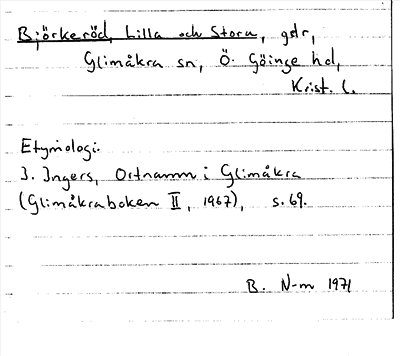 Björkeröd, Lilla och Stora, gdr,
Glimåkra sn, Ö. Göinge hd,
Krist. l.
Etymologi:
I. Ingers, Ortnamn i Glimåkra
(Glimåkraboken II, 1967), s. 69.
B. N-m 1971